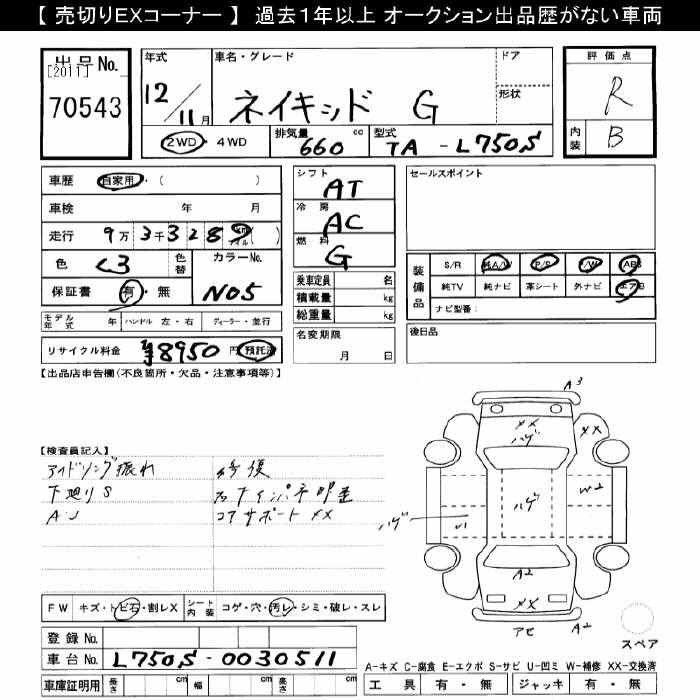 【 売切りEXコーナー 】 過去1年以上 オークション出品歴がない車両
出品No.
[2011]
70543
年式
12/11月
車名・グレード
ネイキッド G
ドア
形状
2WD・4WD
排気量
660 cc
型式
TA - L750S
評価点
R
内装
B
車歴 自家用・( )
車検 年 月
走行 9万3千328 km マイル( )
色 くろ
色替
カラーNo.
N05
保証書 有・無
モデル年式 年 ハンドル 左・右 ディーラー・並行
リサイクル料金 ¥8950円 預託済
シフト
AT
冷房
AC
燃料
G
乗車定員 名
積載量 kg
総重量 kg
名変期限
月 日
セールスポイント
装備品
S/R 純A/W P/S P/W ABS
純TV 純ナビ 革シート 外ナビ エアB
ナビ型番:
後日品
【出品店申告欄(不良箇所・欠品・注意事項等)】
【検査員記入】
アイドリング振れ
下廻りS
AU
修復
右ナインパネ
コアサポートXX
A3
XX
ハゲ
XX
ハゲ
W2
ハゲ
U1
A2
XX
アセ
A2
スペア
FW キズ・トビ石・割レX
シート内装 コゲ・穴・汚レ・シミ・破レ・スレ
登録No.
車台No. L750S-0030511
車庫証明用 長さ cm 幅 cm 高さ cm
A-キズ C-腐食 E-エクボ S-サビ U-凹ミ W-補修 XX-交換済
工具 有・無 ジャッキ 有・無